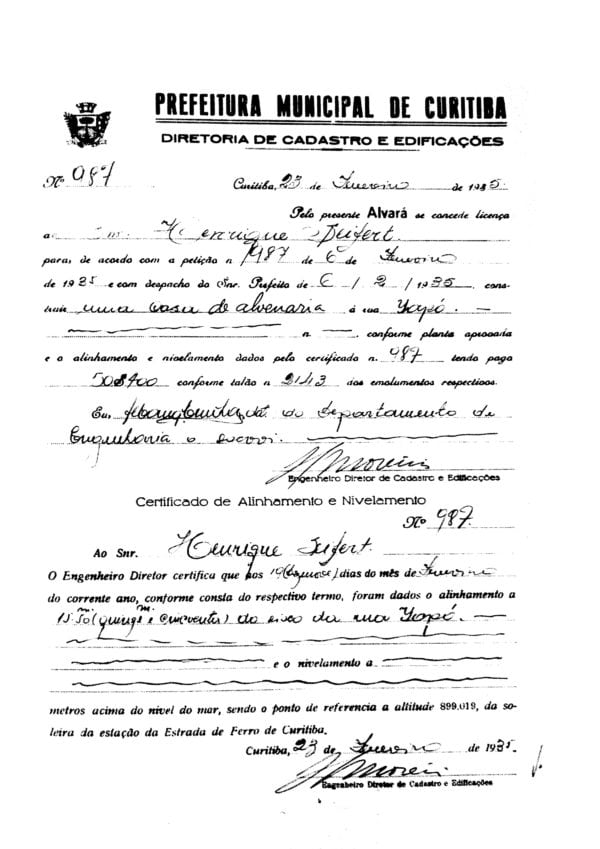 PREFEITURA MUNICIPAL DE CURITIBA
DIRETORIA DE CADASTRO E EDIFICAÇÕES
Nº 987
Curitiba, 23 de Fevereiro de 1935.
Pelo presente Alvará se concede licença
ao Snr. Henrique Seifert.
para, de acordo com a petição n. 987 de 6 de Fevereiro
de 1935 e com despacho do Snr. Prefeito de 6 / 2 / 1935, cons-
truir uma casa de alvenaria á rua Yapó. —
n. —, conforme planta aprovada
e o alinhamento e nivelamento dados pelo certificado n. 987 tendo pago
50$400 conforme talão n. 2143 dos emolumentos respectivos.
Eu, do Departamento de
Engenharia o escrevi.
Engenheiro Diretor de Cadastro e Edificações
Certificado de Alinhamento e Nivelamento
Nº 987.
Ao Snr. Henrique Seifert.
O Engenheiro Diretor certifica que aos 19 dias do mês de Fevereiro
do corrente ano, conforme consta do respectivo termo, foram dados o alinhamento a
15.m50 (quinze m. e cincoenta) do eixo da rua Yapó. —
e o nivelamento a
metros acima do nivel do mar, sendo o ponto de referencia a altitude 899,019, da so-
leira da estação da Estrada de Ferro de Curitiba.
Curitiba, 23 de Fevereiro de 1935.
Engenheiro Diretor de Cadastro e Edificações